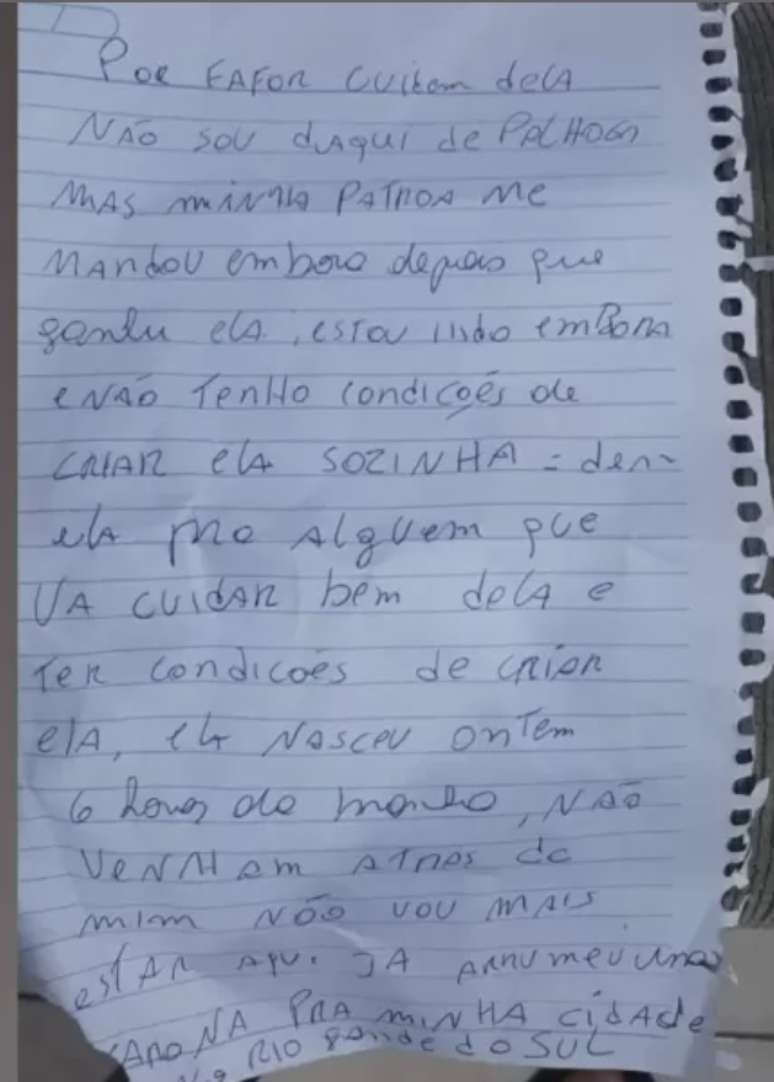 Por FAFOR CUitem dela
NÃO SOU dAqui de PALHOÇA
MAS MINHA PATROA Me
MANDOU embora depois que
ganhei ela, estou indo embora
e NÃO TENHO condicoẽs de
CRIAR ela SOZINHA = dem
ela pra Alguem que
VA CUIDAR bem dela e
TER condicoẽs de criar
ela, ela NASCEU ONTEM
6 horas da manhã, NÃO
VENHAM ATRAS de
mim NÃO VOU MAIS
estAR aqui JA ARRUMEI uma
CARONA PRA MINHA cidade
RIO gande do SUL